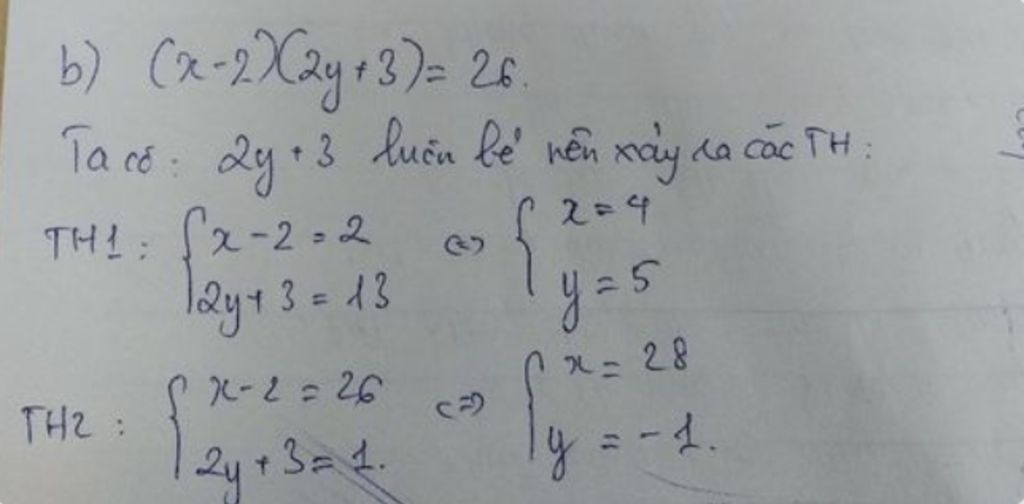 b) (x-2)(2y+3)= 26.
Ta có: 2y+3 luôn lẻ nên xảy ra các TH:
TH1: { x-2 = 2 <=> { x = 4
2y+3 = 13 y = 5
TH2: { x-2 = 26 <=> { x = 28
2y+3 = 1. y = -1.